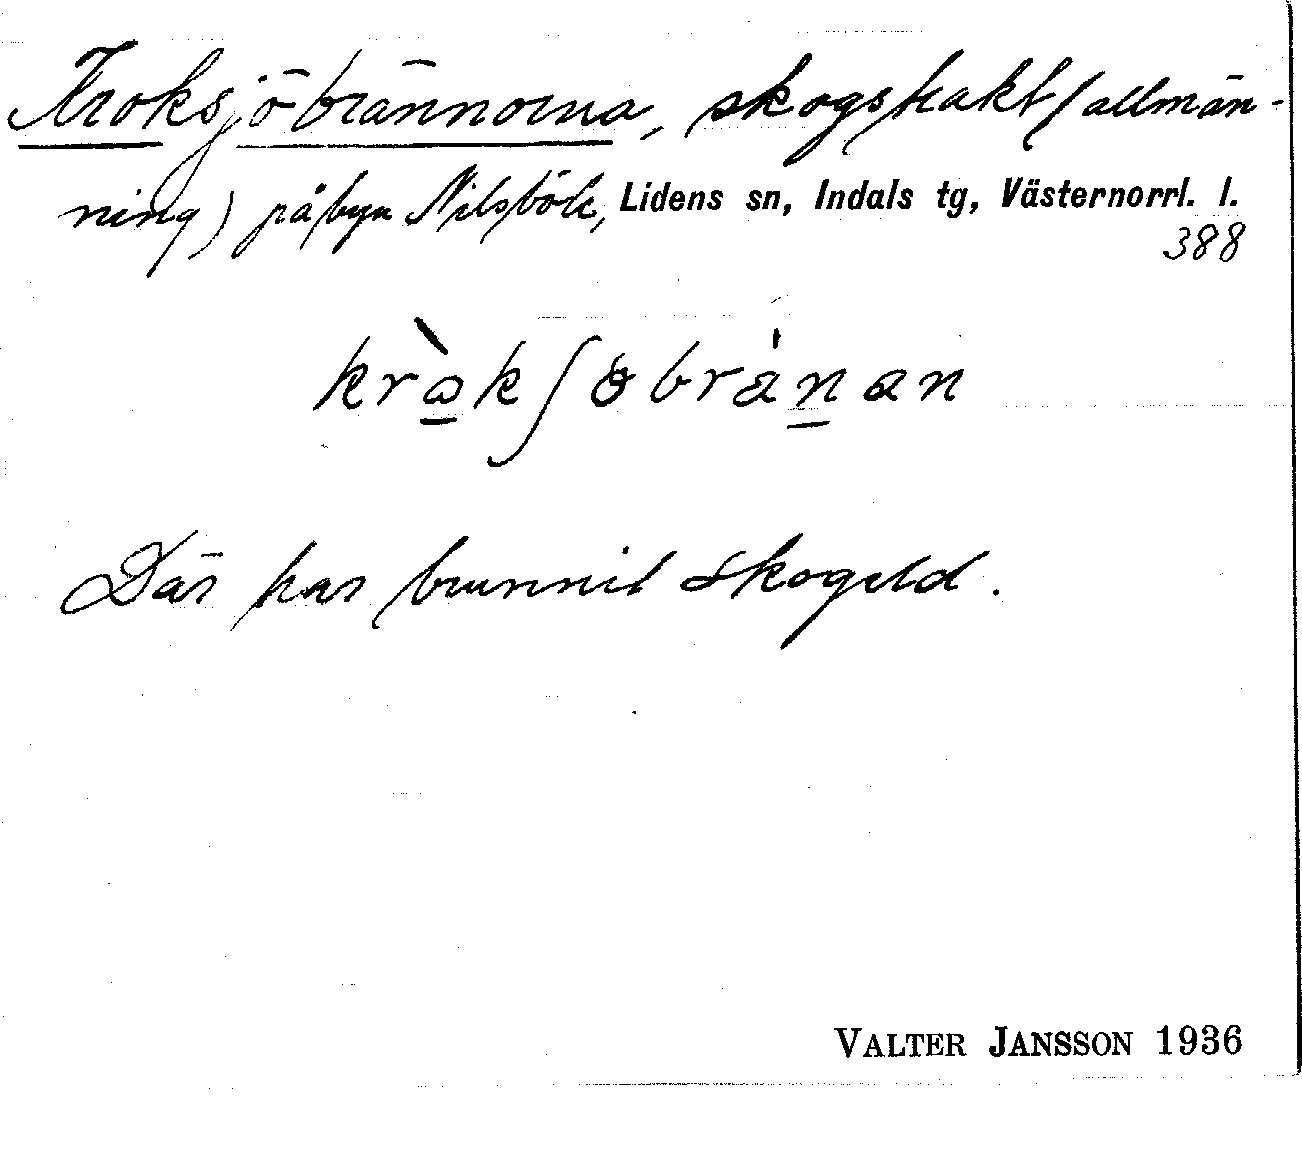 Kroksjöbrännorna, skogstrakt (allmän-
ning) på byn Nilsböle, Lidens sn, Indals tg, Västernorrl. l.
388
Där har brunnit skogeld.
VALTER JANSSON 1936